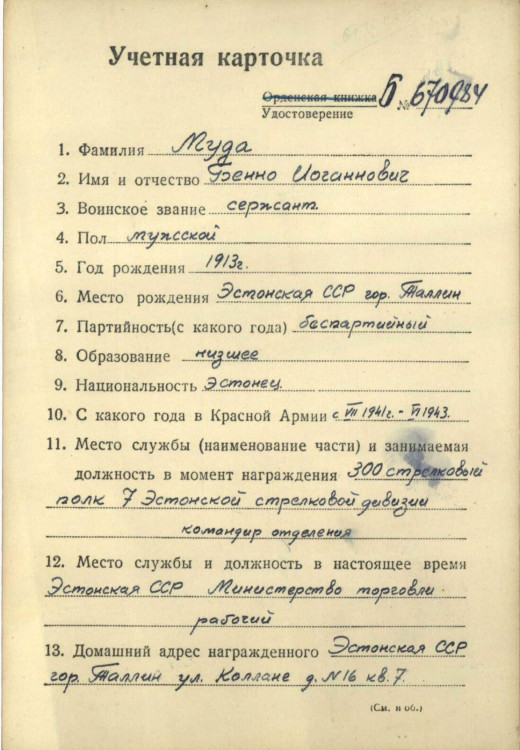 Учетная карточка
Орденская книжка Б № 670984
Удостоверение
1. Фамилия Муда
2. Имя и отчество Бенно Иоганнович
3. Воинское звание сержант.
4. Пол мужской
5. Год рождения 1913г.
6. Место рождения Эстонская ССР гор. Таллин
7. Партийность(с какого года) беспартийный
8. Образование низшее
9. Национальность Эстонец.
10. С какого года в Красной Армии с VII 1941г. - VI 1943.
11. Место службы (наименование части) и занимаемая
должность в момент награждения 300 стрелковый
полк 7 Эстонской стрелковой дивизии
командир отделения
12. Место службы и должность в настоящее время
Эстонская ССР Министерство торговли
рабочий
13. Домашний адрес награжденного Эстонская ССР
гор. Таллин ул. Коллане д. N16 кв. 7.
(См. н об.)